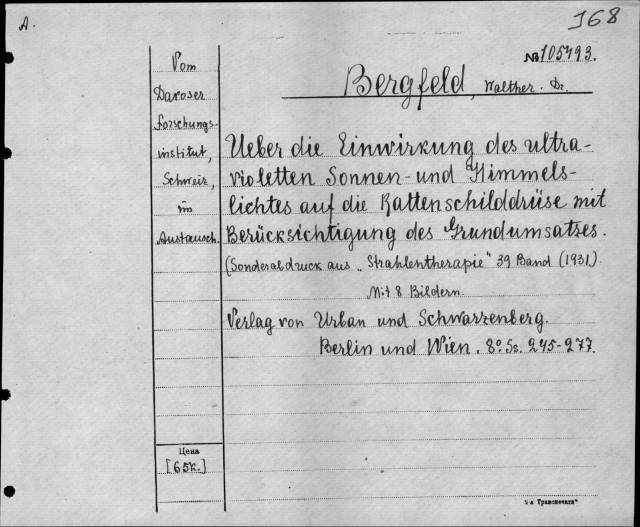 A.
168
№ 105493.
Bergfeld, Walther. Dr.
Vom
Davoser
Forschungs-
institut,
Schweiz,
im
Austausch.
Ueber die Einwirkung des ultra-
violetten Sonnen- und Himmels-
lichtes auf die Rattenschilddrüse mit
Berücksichtigung des Grundumsatzes.
(Sonderabdruck aus „Strahlentherapie" 39 Band (1931).
Mit 8 Bildern.
Verlag von Urban und Schwarzenberg.
Berlin und Wien. 8° Ss. 245-277.
Цена
[65к.]
Транспечати"